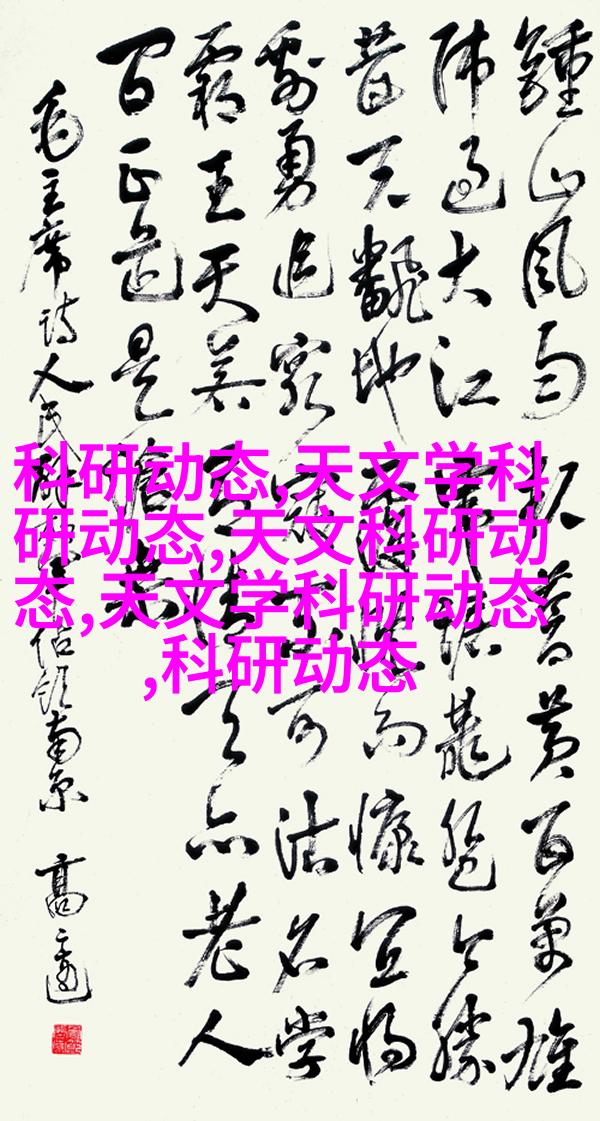 鍾山风雨起蒼黄百万雄
师过大江虎踞龍盘今胜
昔天翻地覆慨而慷宜将
剩勇追穷寇不可沽名学
霸王天若有情天亦老人
间正道是沧桑
毛主席诗人民解放军占领南京
科研动态,天文学科
研动态,天文科研动
态,天文学科研动态
,科研动态